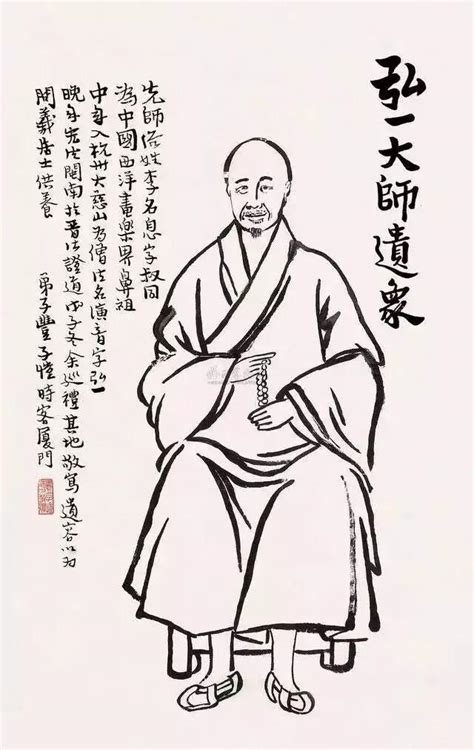 弘一大師遺象
先師俗姓李名息字叔同
為中國西洋畫樂界鼻祖
中年入杭州大慈山為僧法名演音字弘一
晚年法閩南於晋江證道戊子冬余巡禮其地敬寫遺容以為
居士供養
弟子豐子愷時客廈門